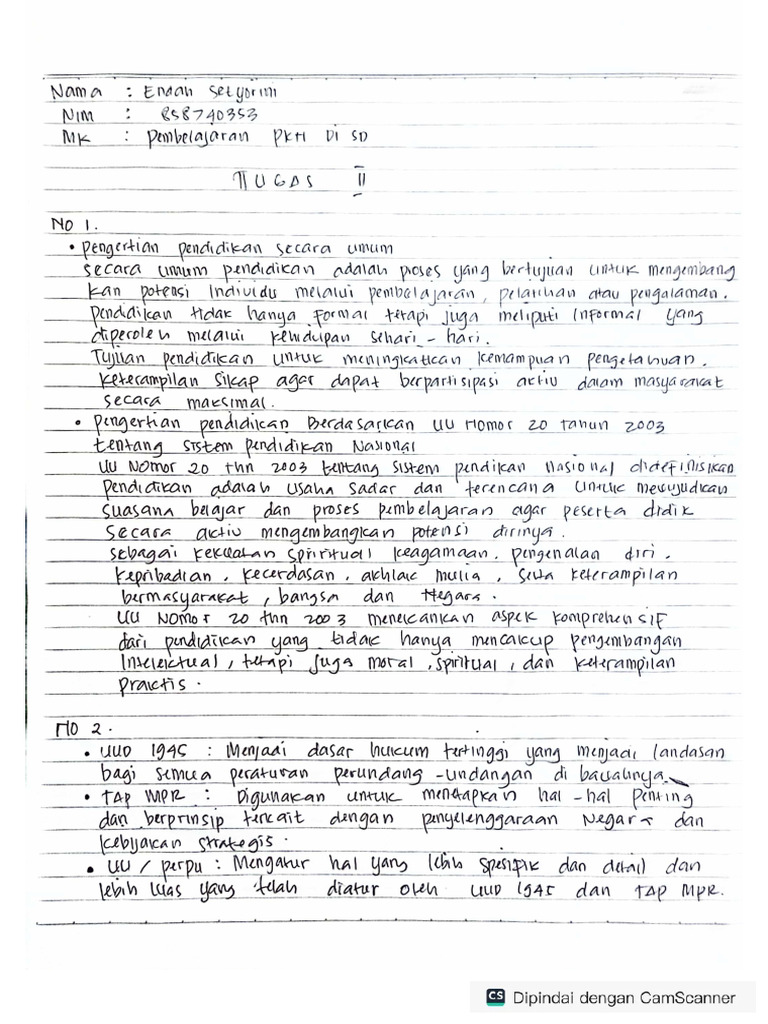 Nama : Endah Setyorini
NIM : 858740353
MK : Pembelajaran PKn Di SD
TUGAS II
No 1.
• Pengertian pendidikan secara umum
secara umum pendidikan adalah proses yang bertujuan untuk mengembang
kan potensi Individu melalui pembelajaran, pelatihan atau pengalaman.
pendidikan tidak hanya formal tetapi juga meliputi Informal yang
diperoleh melalui kehidupan sehari - hari.
Tujuan pendidikan untuk meningkatkan kemampuan pengetahuan.
keterampilan sikap agar dapat berpartisipasi aktiv dalam masyarakat
secara maksimal.
• pengertian pendidikan Berdasarkan UU Nomor 20 tahun 2003
tentang sistem pendidikan Nasional
UU Nomor 20 thn 2003 tentang sistem pendikan Nasional didefinisikan
pendidikan adalah usaha sadar dan terencana untuk mewujudkan
suasana belajar dan proses pembelajaran agar peserta didik
secara aktiv mengembangkan potensi dirinya.
sebagai kekuatan spiritual keagamaan. pengenalan diri.
kepribadian, kecerdasan, akhlak mulia, serta keterampilan
bermasyarakat, bangsa dan Negara.
UU Nomor 20 thn 2003 menekankan aspek komprehensif
dari pendidikan yang tidak hanya mencakup pengembangan
Intelektual, tetapi juga moral, spiritual, dan keterampilan
praktis.
No 2.
• UUD 1945 : Menjadi dasar hukum tertinggi yang menjadi landasan
bagi semua peraturan perundang -undangan di bawahnya.
• TAP MPR : Digunakan untuk menetapkan hal -hal penting
dan berprinsip terkait dengan penyelenggaraan Negara dan
kebijakan strategis.
• UU / perpu : Mengatur hal yang lebih spesifik dan detail dan
lebih luas yang telah diatur oleh UUD 1945 dan TAP MPR.
CS Dipindai dengan CamScanner